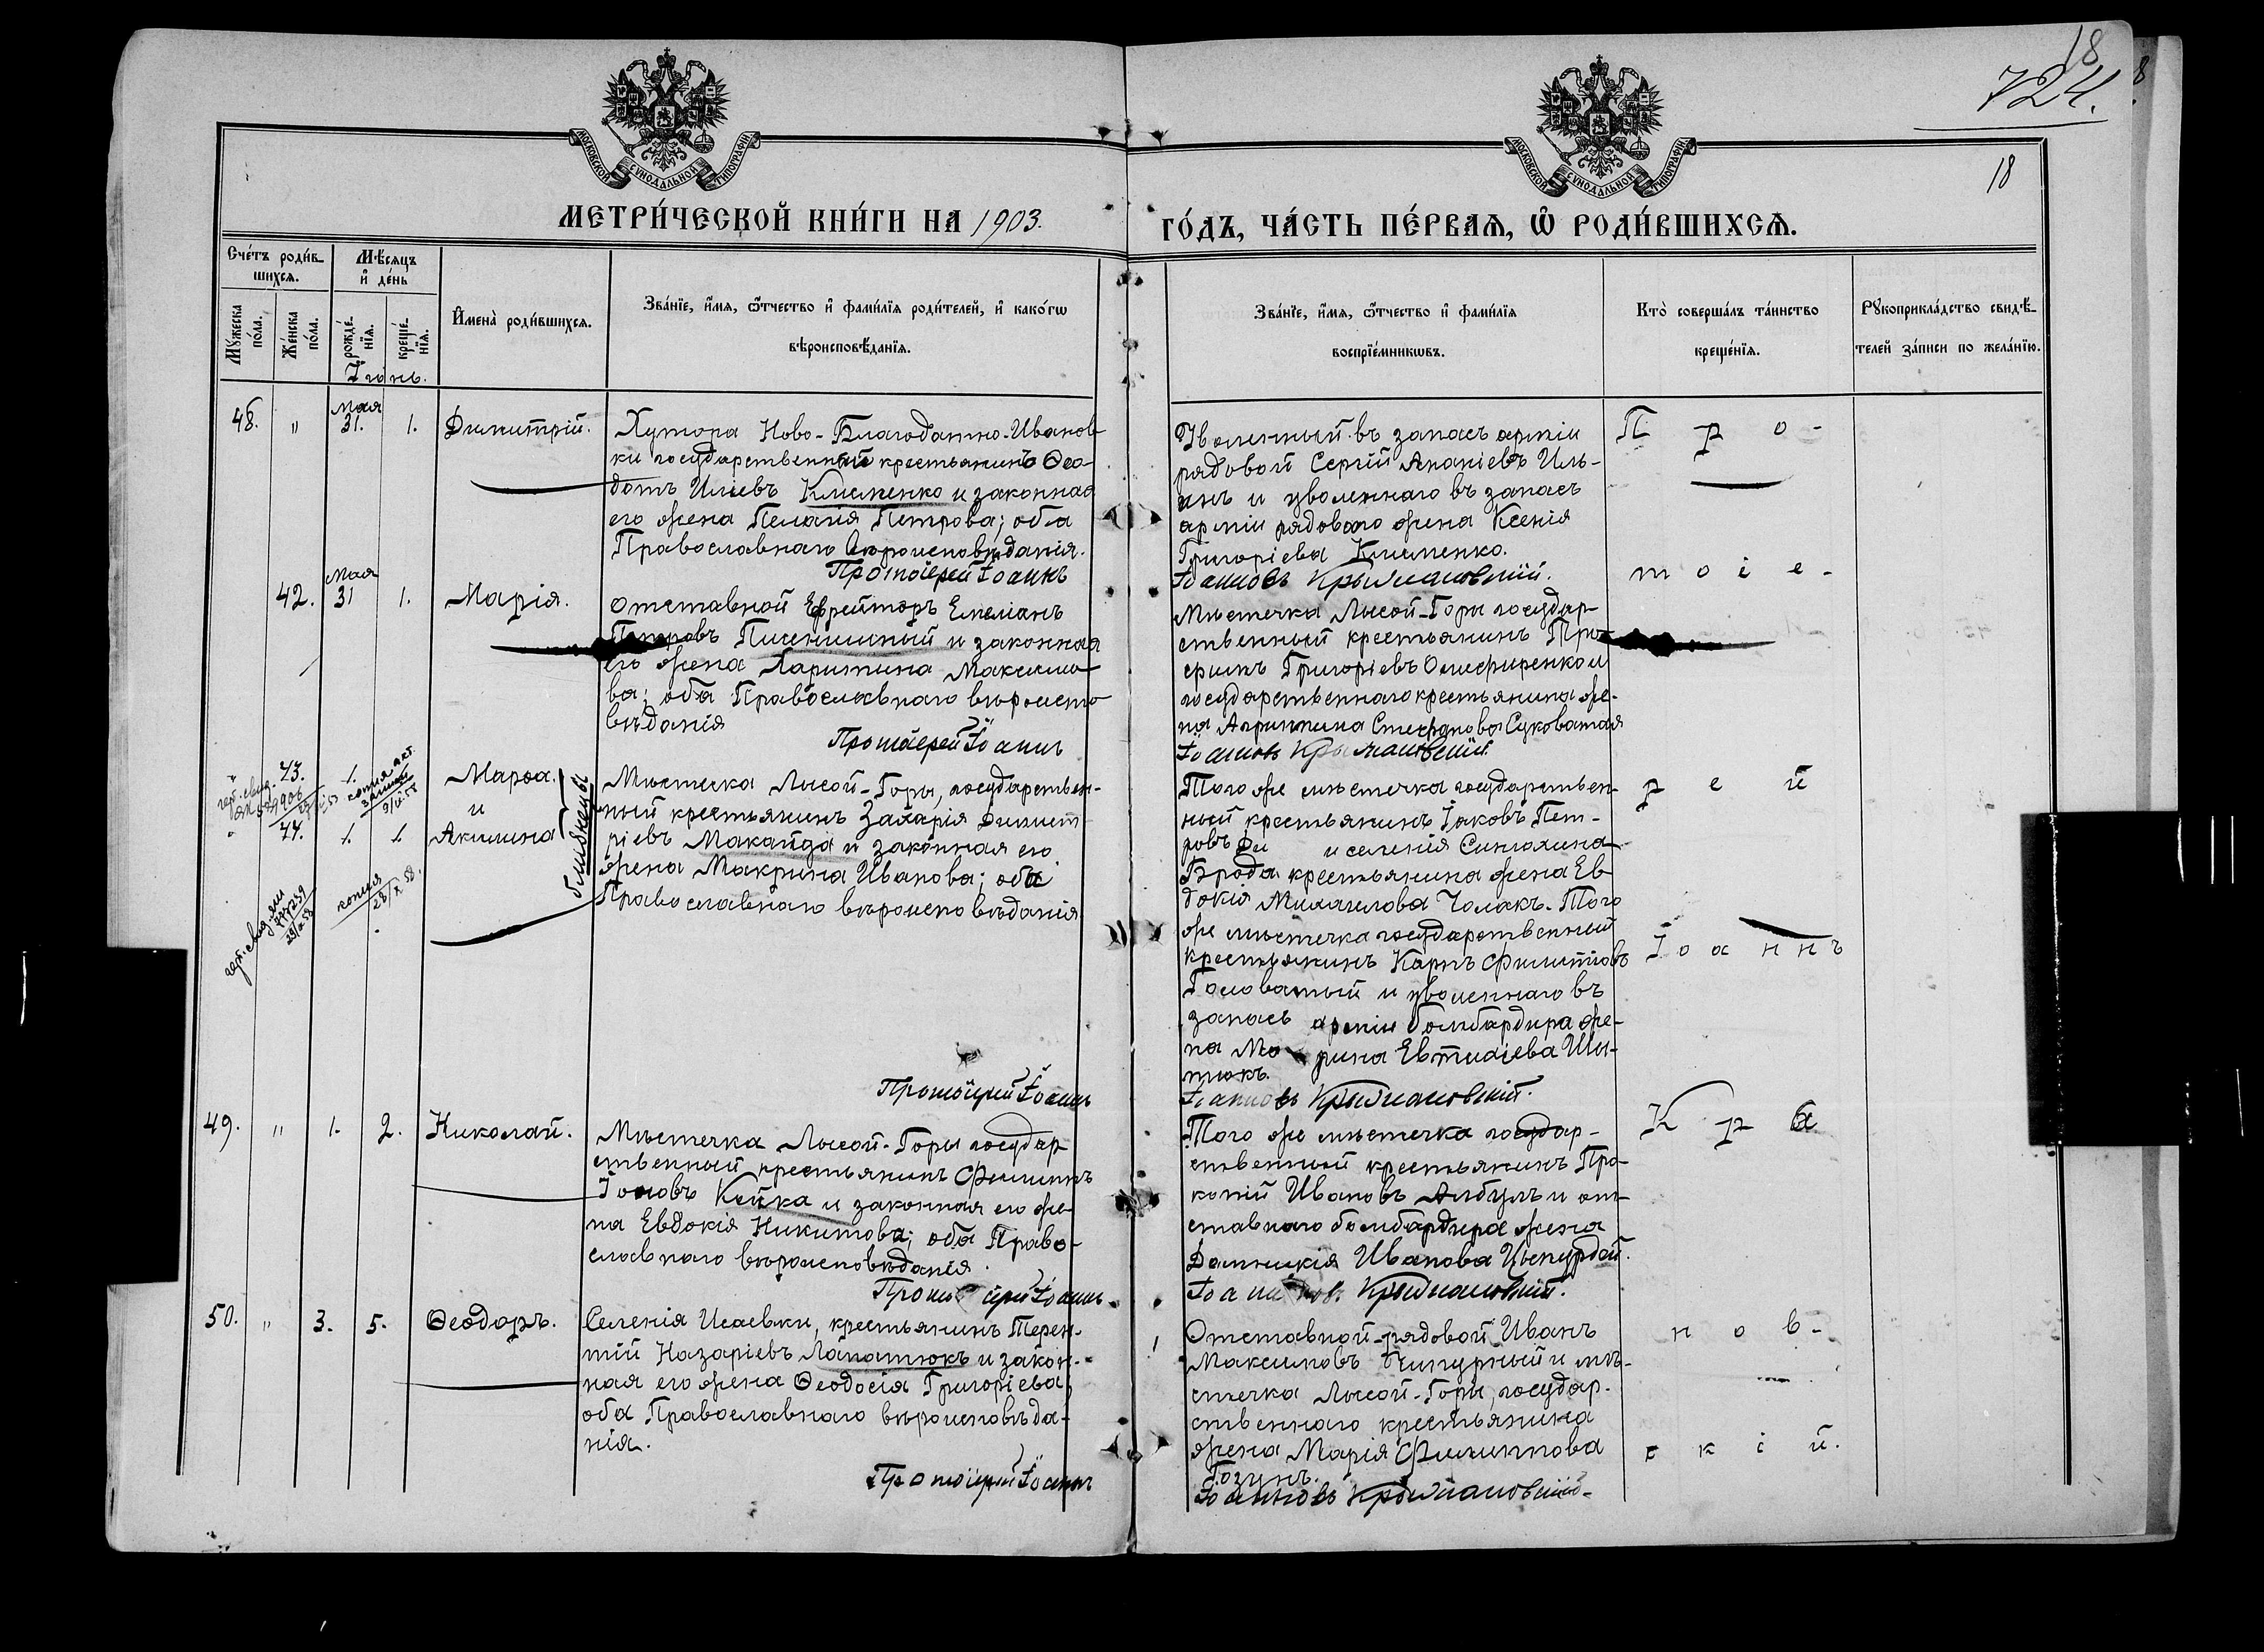 18
724.
8
МОСКОВСКОЙ СУНОДАЛЬНОЙ ТИПОГРАФІИ
МОСКОВСКОЙ СУНОДАЛЬНОЙ ТИПОГРАФІИ
18
МЕТРИ́ЧЕСКОЙ КНИ́ГИ НА 1903.
ГО́ДЪ, ЧА́СТЬ ПЕ́РВАѦ, Ѡ҆ РОДИ́ВШИХСѦ.
Сче́тъ роди́в-
шихсѧ.
Мꙋ́жеска по́ла.
Же́нска по́ла.
Мѣ́сѧцъ
и҆ де́нь
рожде́-
нїѧ.
креще́-
нїѧ.
Іюнь.
И҆мена̀ роди́вшихсѧ.
Зва́нїе, и҆́мѧ, ѻ҆́тчество и҆ фами́лїѧ роди́телей, и҆ како́гѡ
вѣроисповѣ́данїѧ.
Зва́нїе, и҆́мѧ, ѻ҆́тчество и҆ фами́лїѧ
воспрїе́мникѡвъ.
Кто̀ соверша́лъ та́инство
креще́нїѧ.
Рꙋкоприкла́дство свидѣ́-
телей за́писи по жела́нїю.
48. " Мая 31. 1. Димитрій.
Хутора Ново-Благодатно-Иванов-
ки государственный крестьянинъ Ѳео-
дотъ Иліевъ Клименко и законная
его жена Пелагія Петрова; оба
Православнаго вѣроисповѣданія.
Протоіерей Іоаннъ
Уволенный въ запасъ арміи
рядовой Сергій Ананіевъ Иль-
инъ и уволеннаго въ запасъ
арміи рядового жена Ксенія
Григоріева Клименко.
Іоанновъ Крыжановскій.
П р о -
42. Мая 31 1. Марія.
Отставной Ефрейторъ Емеліанъ
Пшеничный и законная
его жена Харитина Максимо-
ва; оба Православнаго вѣроиспо-
вѣданія
Протоіерей Іоаннъ
Мѣстечка Лысой-Горы государ-
ственный крестьянинъ Тро-
фимъ Григоріевъ Олефиренко и
государственнаго крестьянина же-
на Агрипина Стефанова Суковатая
Іоанновъ Крыжановскій.
т о і е -
" 43. 1. Марѳа.
и
" 44. 1. 1. Акилина
близнецы
копія
28/X 58.
Мѣстечка Лысой-Горы, государствен-
ный крестьянинъ Захарія Димит-
ріевъ Макайда и законная его
жена Макрина Иванова; оба
Православнаго вѣроисповѣданія
Протоіерей Іоаннъ
Того же мѣстечка государствен-
ный крестьянинъ Іаковъ Пет-
ровъ и селенія Синюхина
Брода крестьянина жена Ев-
докія Михаилова Чолакъ. Того
же мѣстечка государственный
крестьянинъ Карпъ Филиповъ
Головатый и уволеннаго въ
запасъ арміи бомбардира же-
на Евтихіева Ши-
тюкъ.
Іоанновъ Крыжановскій.
р е й
І о а н н ъ
49. " 1. 2. Николай.
Мѣстечка Лысой-Горы государ-
ственный крестьянинъ Филиппъ
Іововъ Кейка и законная его же-
на Евдокія Никитова; оба Право-
славнаго вѣроисповѣданія.
Протоіерей Іоаннъ
Того же мѣстечка государ-
ственный крестьянинъ Про-
копій Ивановъ Албулъ и от-
ставнаго бомбардира жена
Домникія Иванова
Іоанновъ Крыжановскій.
К р а
50. " 3. 5. Ѳеодоръ.
Селенія Исаевки, крестьянинъ Терен-
тій Назаріевъ Лапатюкъ и закон-
ная его жена Ѳеодосія Григоріева,
оба Православнаго вѣроисповѣда-
нія.
Протоіерей Іоаннъ
Отставной рядовой Иванъ
Максимовъ Чипурный и мѣ-
стечка Лысой-Горы, государ-
ственнаго крестьянина
жена Марія Филиппова
Гозунъ.
Іоанновъ Крыжановскій.
н о в -
с к і й.